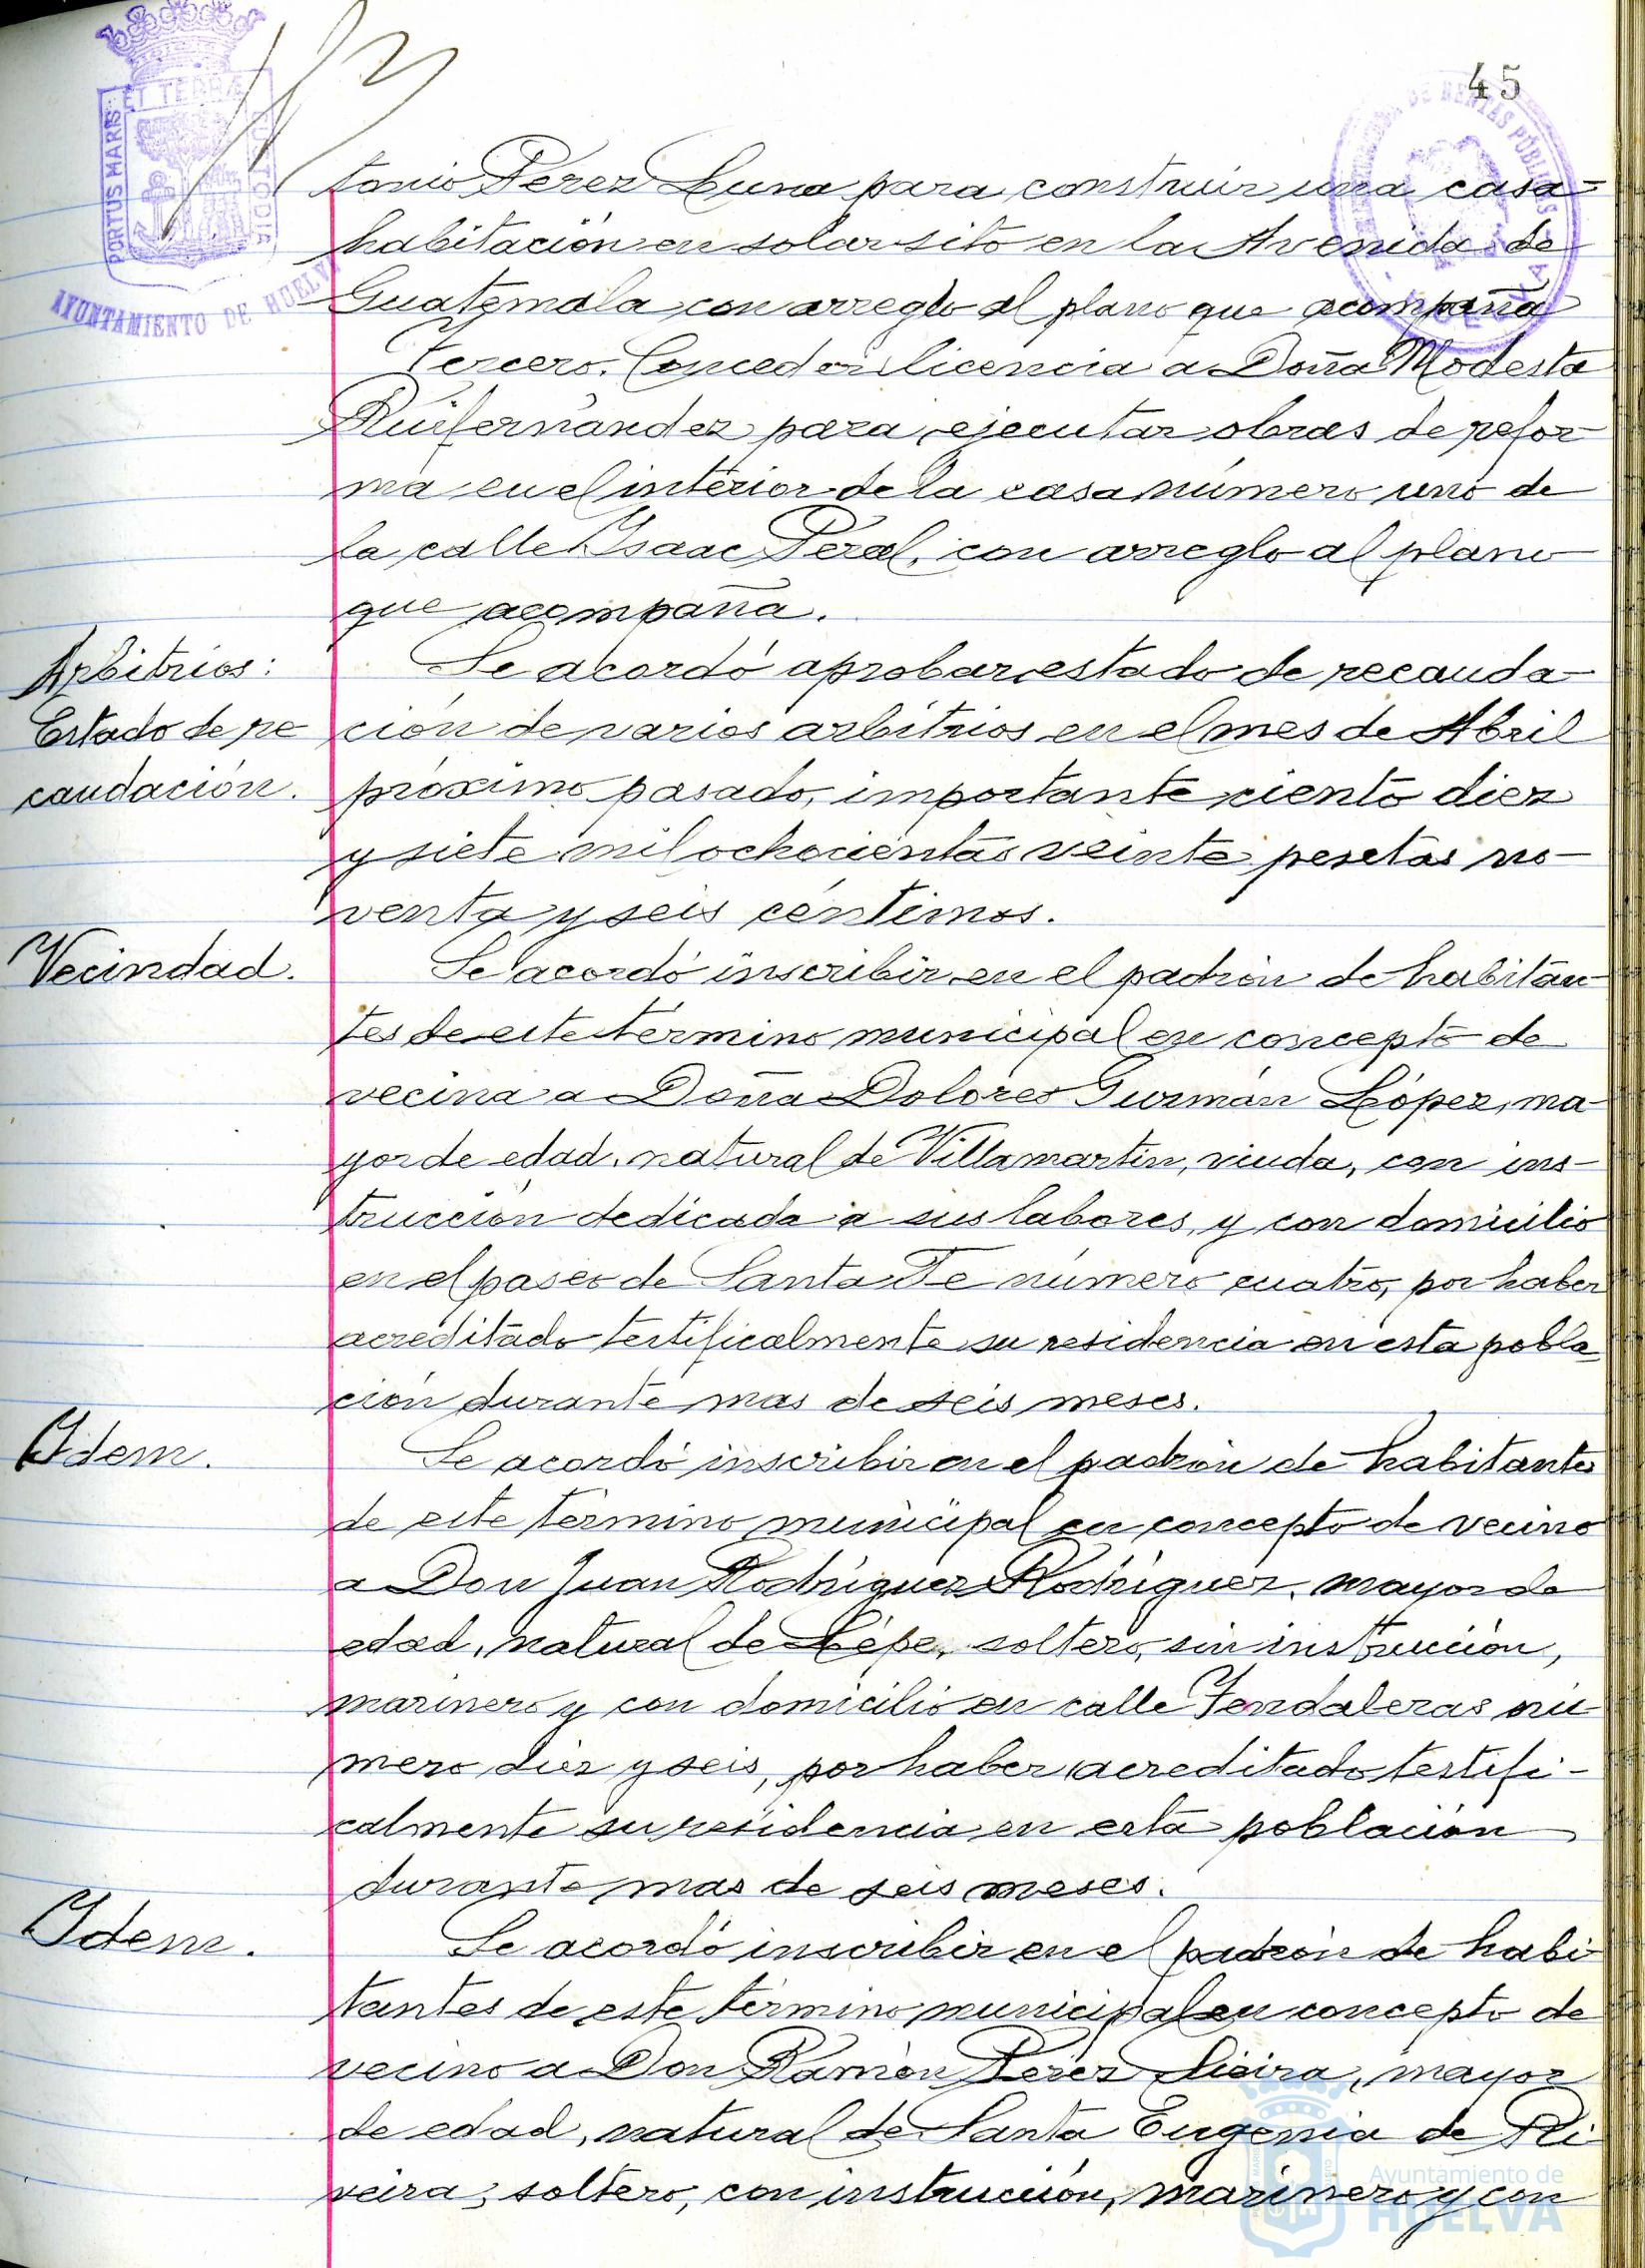 45
PORTUS MARIS ET TERRÆ CUSTODIA
AYUNTAMIENTO DE HUELVA
tonio Pérez Luna para construir una casa-
habitación en solar sito en la Avenida de
Guatemala con arreglo al plano que acompaña
Tercero. Conceder licencia a Doña Modesta
Ruifernández para ejecutar obras de refor-
ma en el interior de la casa número uno de
la calle Isaac Peral, con arreglo al plano
que acompaña.
Arbitrios:
Estado de re
caudación.
Se acordó aprobar estado de recauda-
ción de varios arbitrios en el mes de Abril
próximo pasado, importante ciento diez
y siete mil ochocientas veinte pesetas no-
venta y seis céntimos.
Vecindad.
Se acordó inscribir en el padrón de habitan-
tes de este término municipal en concepto de
vecina a Doña Dolores Guzmán López, ma-
yor de edad, natural de Villamartín, viuda, con ins-
trucción dedicada a sus labores, y con domicilio
en el paseo de Santa Fe número cuatro, por haber
acreditado testificalmente su residencia en esta pobla
ción durante mas de seis meses.
Idem.
Se acordó inscribir en el padrón de habitantes
de este término municipal en concepto de vecino
a Don Juan Rodríguez Rodríguez, mayor de
edad, natural de Lepe, soltero, sin instrucción,
marinero y con domicilio en calle Tendaleras nú-
mero diez y seis, por haber acreditado testifi-
calmente su residencia en esta población
durante mas de seis meses.
Idem.
Se acordó inscribir en el padrón de habi-
tantes de este término municipal en concepto de
vecino a Don Ramón Pérez , mayor
de edad, natural de Santa Eugenia de Ri-
veira, soltero, con instrucción, marinero y con
Ayuntamiento de
HUELVA